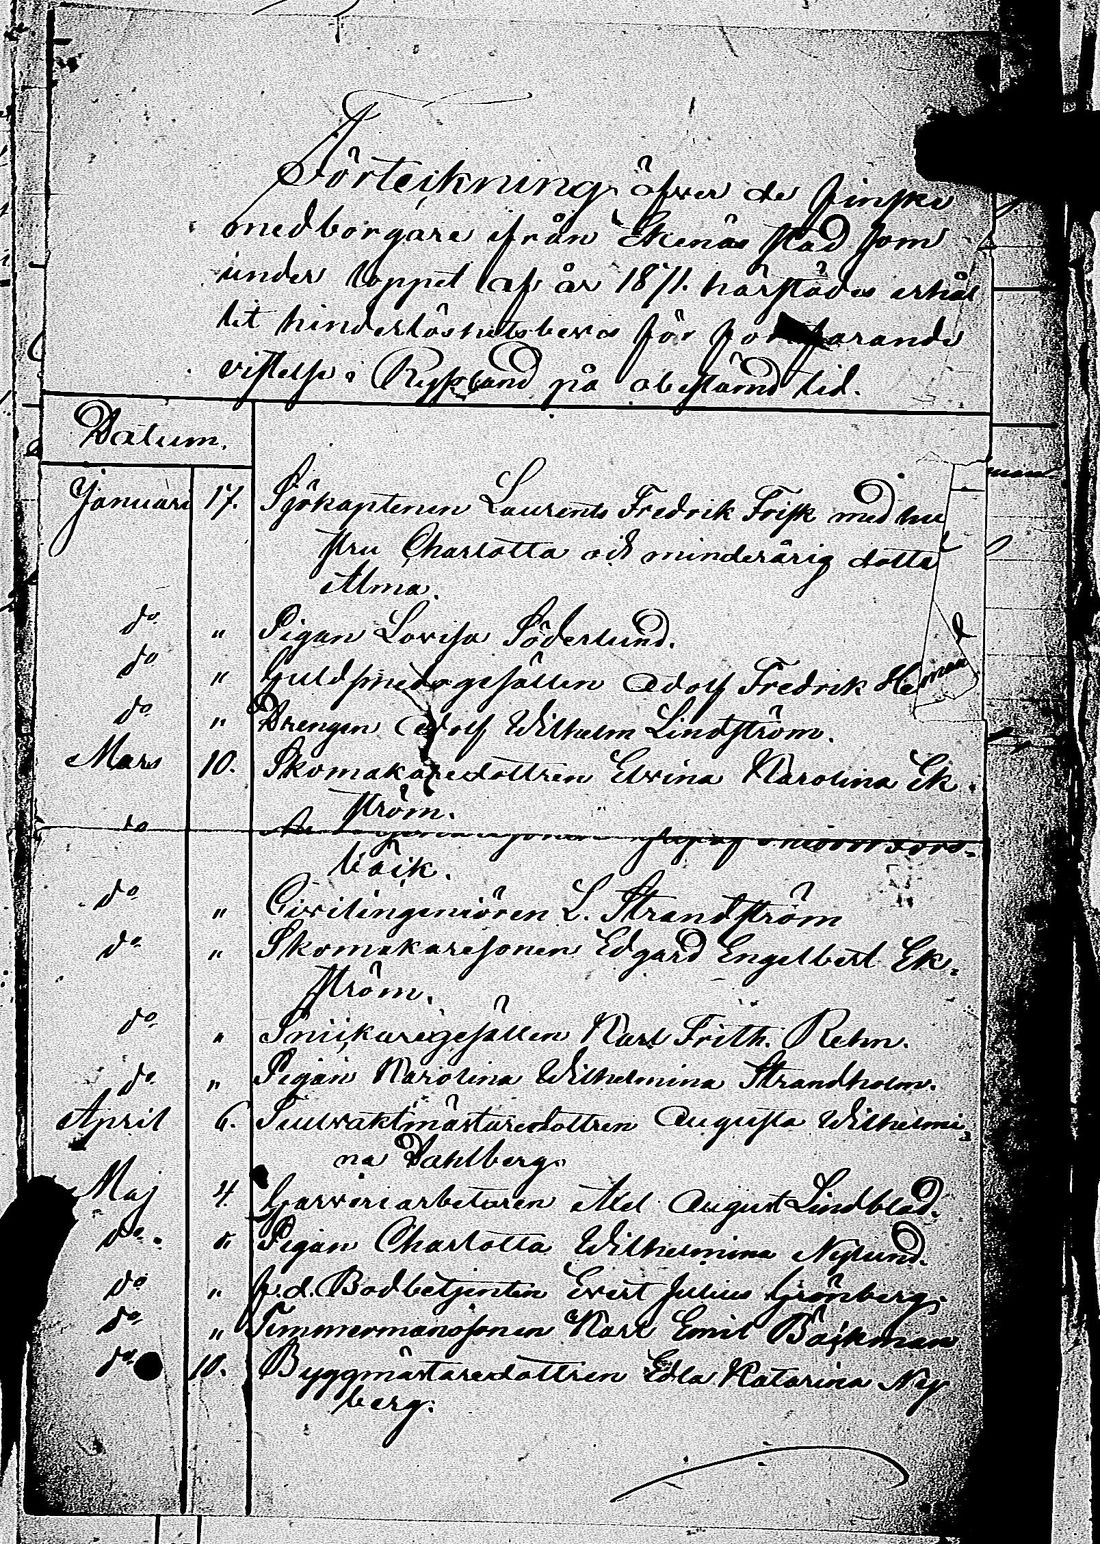 Förteckning öfver de finske
medborgare ifrån Ekenäs stad som
under loppet af år 1871. härstädes erhål
lit hinderlöshetsbevis för fortfarande
vistelse i Ryssland på obestämd tid.
Datum.
Januari 17. Sjökaptenen Laurents Fredrik Frisk med hu
stru Charlotta och minderårig dotter
Alma.
do " Pigan Lovisa Söderlund.
do " Guldsmedsgesällen Adolf Fredrik
do " Drengen Adolf Wilhelm Lindström.
Mars 10. Skomakaredottren Elvina Karolina Ek
ström.
do
bäck.
do " Civilingeniören L. Strandström
do " Skomakaresonen Edgard Engelbert Ek-
ström.
do " Snickaregesällen Karl Frith. Rehn.
do " Pigan Karolina Wilhelmina Strandholm.
April 6. Tullvaktmästaredottren Augusta Wilhelmi-
na Dahlberg.
Maj 4. Garveriarbetaren Abel August Lindblad.
do. " Pigan Charlotta Wilhelmina Nylund.
do " f.d. Bodbetjenten Evert Julius Grönberg.
do " Timmermanssonen Karl Emil Bäckman
do 10. Byggmästaredottren Edla Katarina Ny
berg.